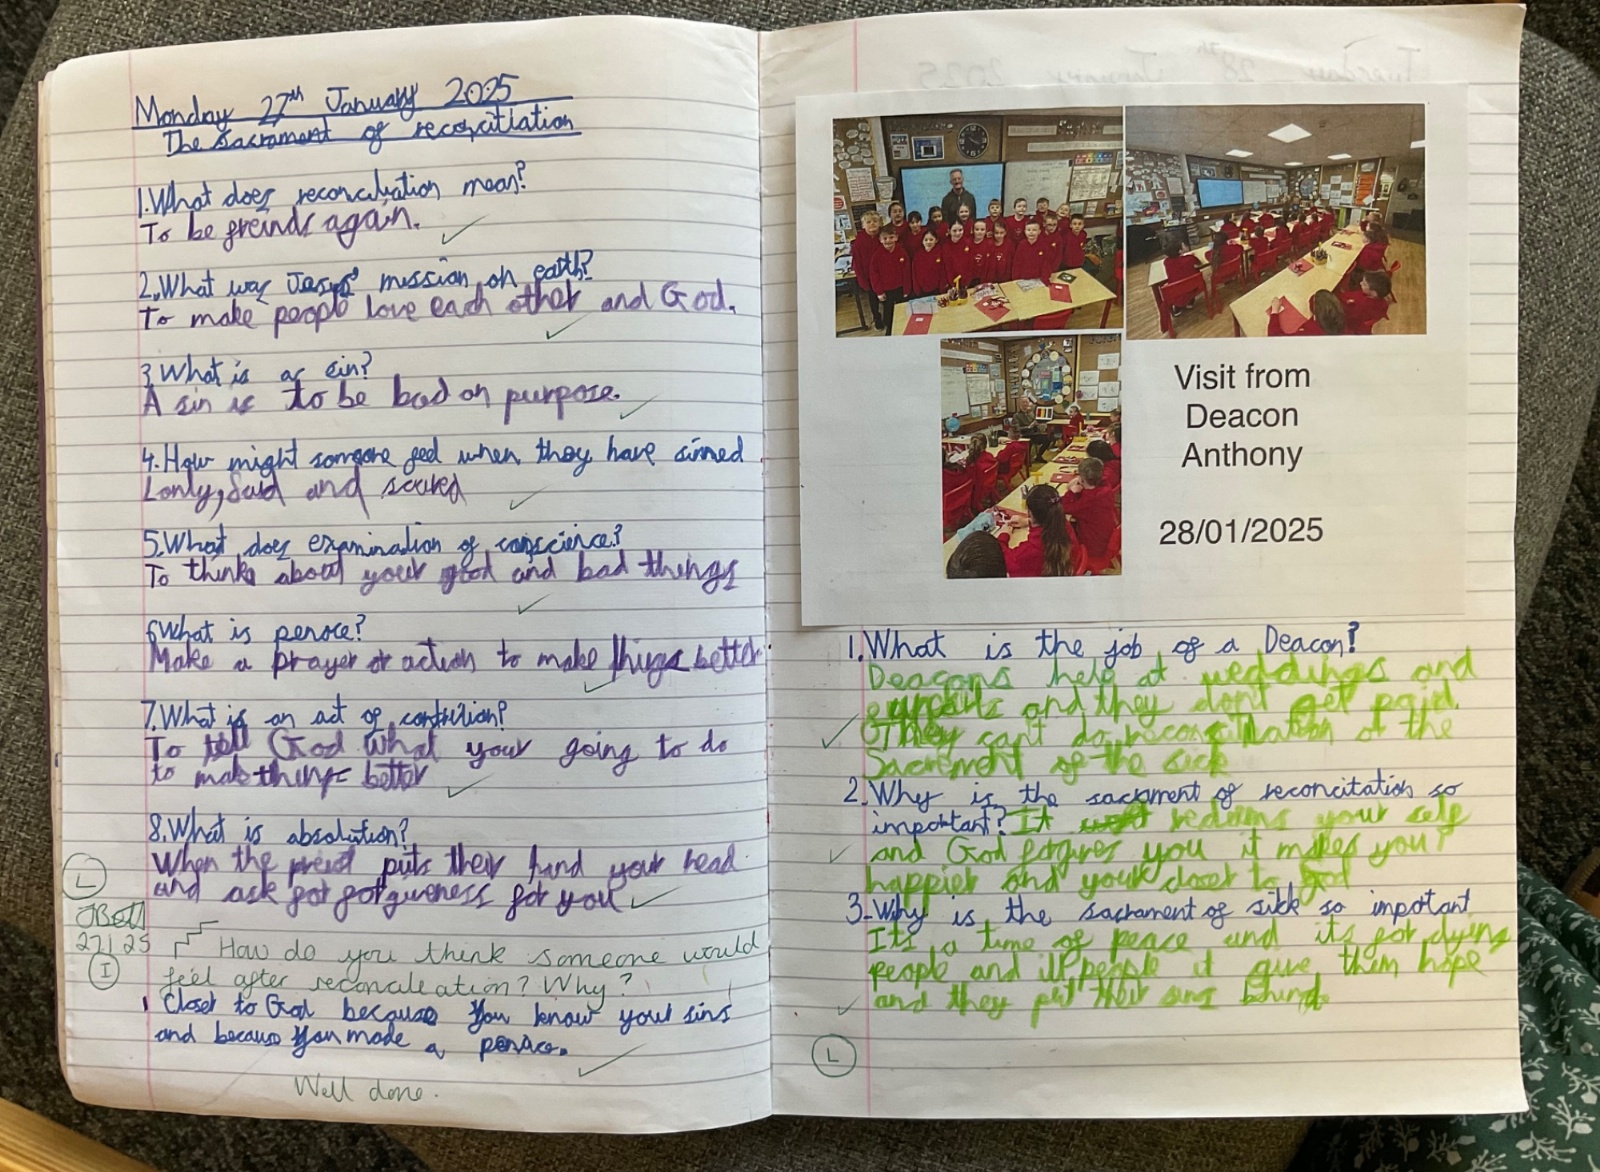 Monday 27th January 2025
The sacrament of reconcitlation
1. What does reconciliation mean?
To be freinds again.
2. What way Jesus' mission on earth?
To make people love each other and God.
3. What is a sin?
A sin is to be bad on purpose.
4. How might someone feel when they have sinned
Lonly, Said and scared
5. What does examination of conscience?
To think about your good and bad things
6 What is penace?
Make a prayer or action to make things better
7. What is an act of contrition?
To tell God what your going to do
to make things better
8. What is absolution?
When the preist puts their hand your head
and ask for forgiveness for you
L
27.1.25
I
How do you think someone would
feel after reconciliation? Why?
Closer to God because you know your sins
and because you made a penace.
Well done.
Visit from
Deacon
Anthony
28/01/2025
1. What is the job of a Deacon?
Deacons help at weddings and
and they dont get paid.
They can't do reconcillation or the
Sacrement of the sick
2. Why is the sacrament of reconcitation so
important? It redeems your self
and God forgives you it makes you
happier and your closer to God
3. Why is the sacrament of sick so impotant
Its a time of peace and its for dying
people and ill people it give them hope
and they put their sins behind
L